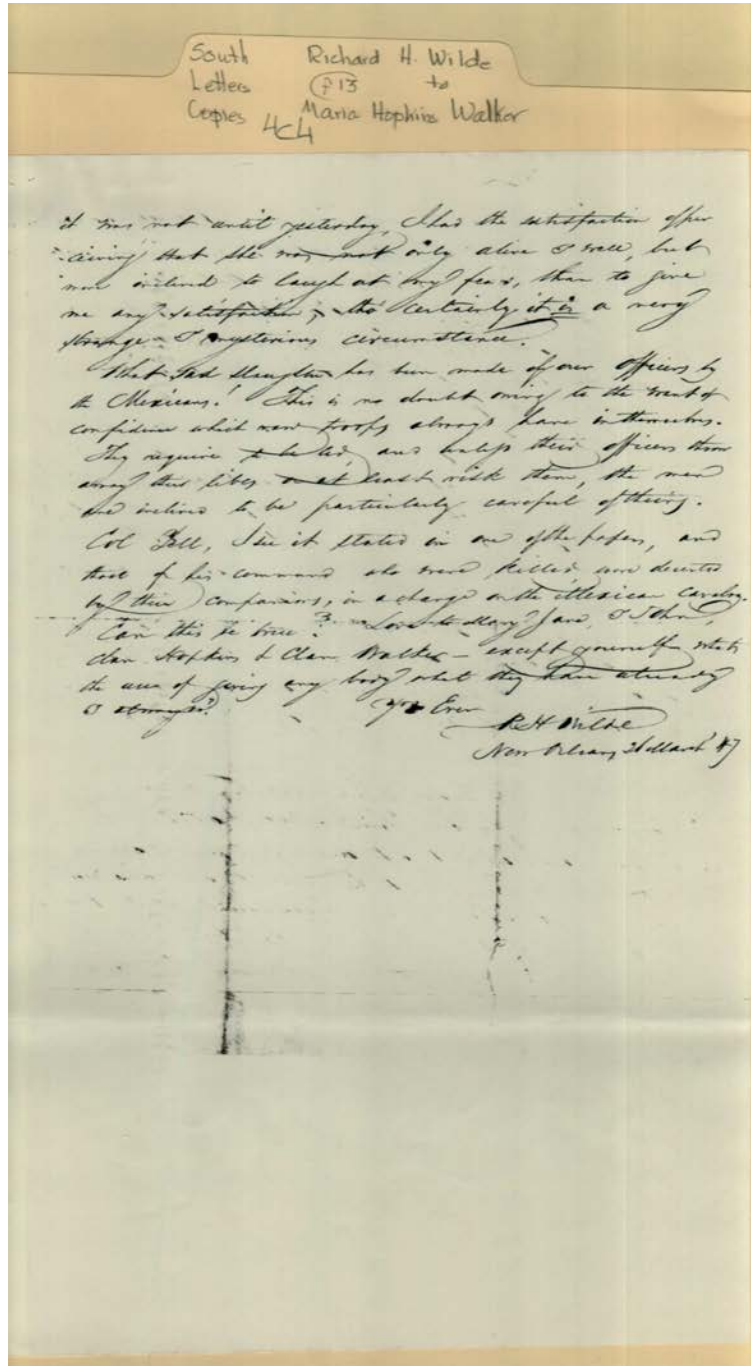 South Richard H. Wilde
Letters p 13 to
Copies Maria Hopkins Walker
4C4
it was not until yesterday, I had the satisfaction of per
-ceiving that she was not only alive & well, but
more inclined to laugh at my fears, than to give
me any satisfaction; tho' certainly it is a very
strange & mysterious circumstance.
What sad slaughter has been made of our officers by
the Mexicans! This is no doubt owing to the want of
confidence which new troops always have in themselves.
They require to be led, and unless their officers throw
away their lives or at least risk them, the men
are inclined to be particularly careful of theirs.
Col I see it stated in one of the papers, and
those of his command who were killed were deserted
by their companions, in a charge on the Mexican cavalry.
Can this be true? Love to Mary Jane, & John,
clan Hopkins & Clan Walker – except yourself – what's
the use of giving any body what they have already
& always?
Yrs Ever
R H Wilde
New Orleans 26 March '47